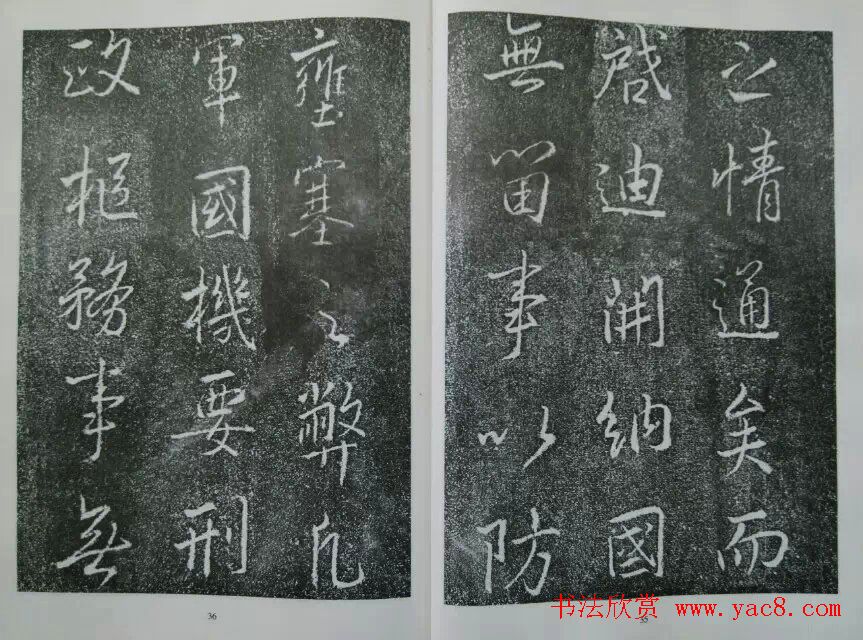 之情通矣而
啟迪開納國
無留事以防
壅塞之弊凡
軍國機要刑
政樞務事無
35
36
书法欣赏 www.yac8.com